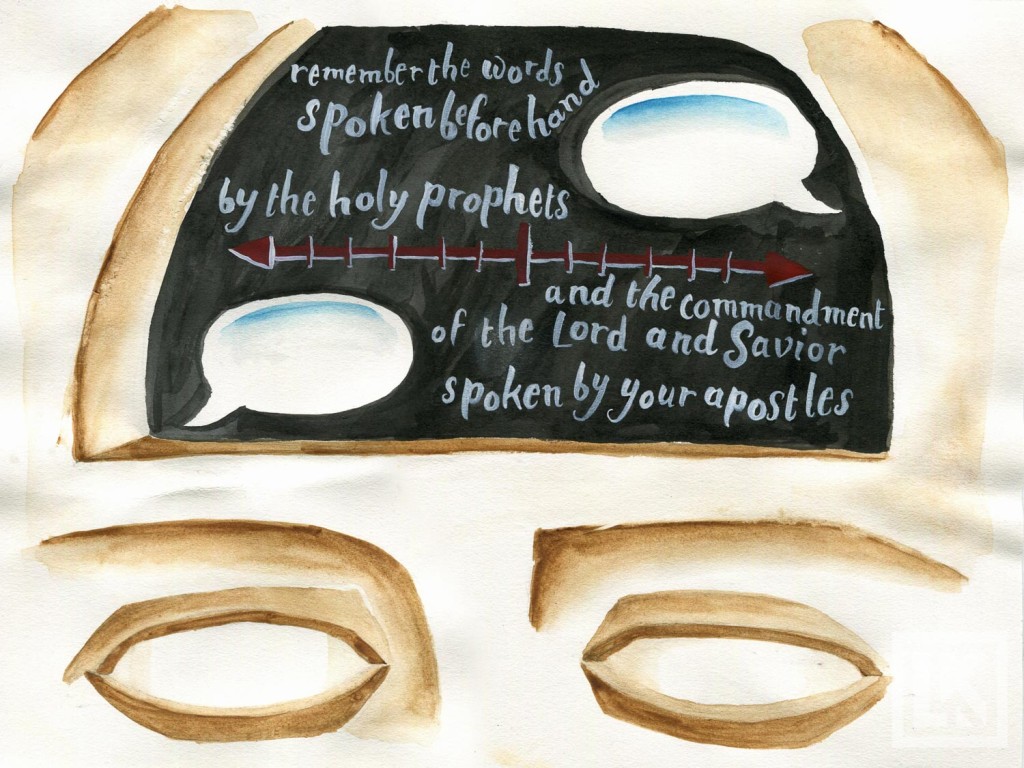 remember the words
spoken beforehand
by the holy prophets
and the commandment
of the Lord and Savior
spoken by your apostles
LK